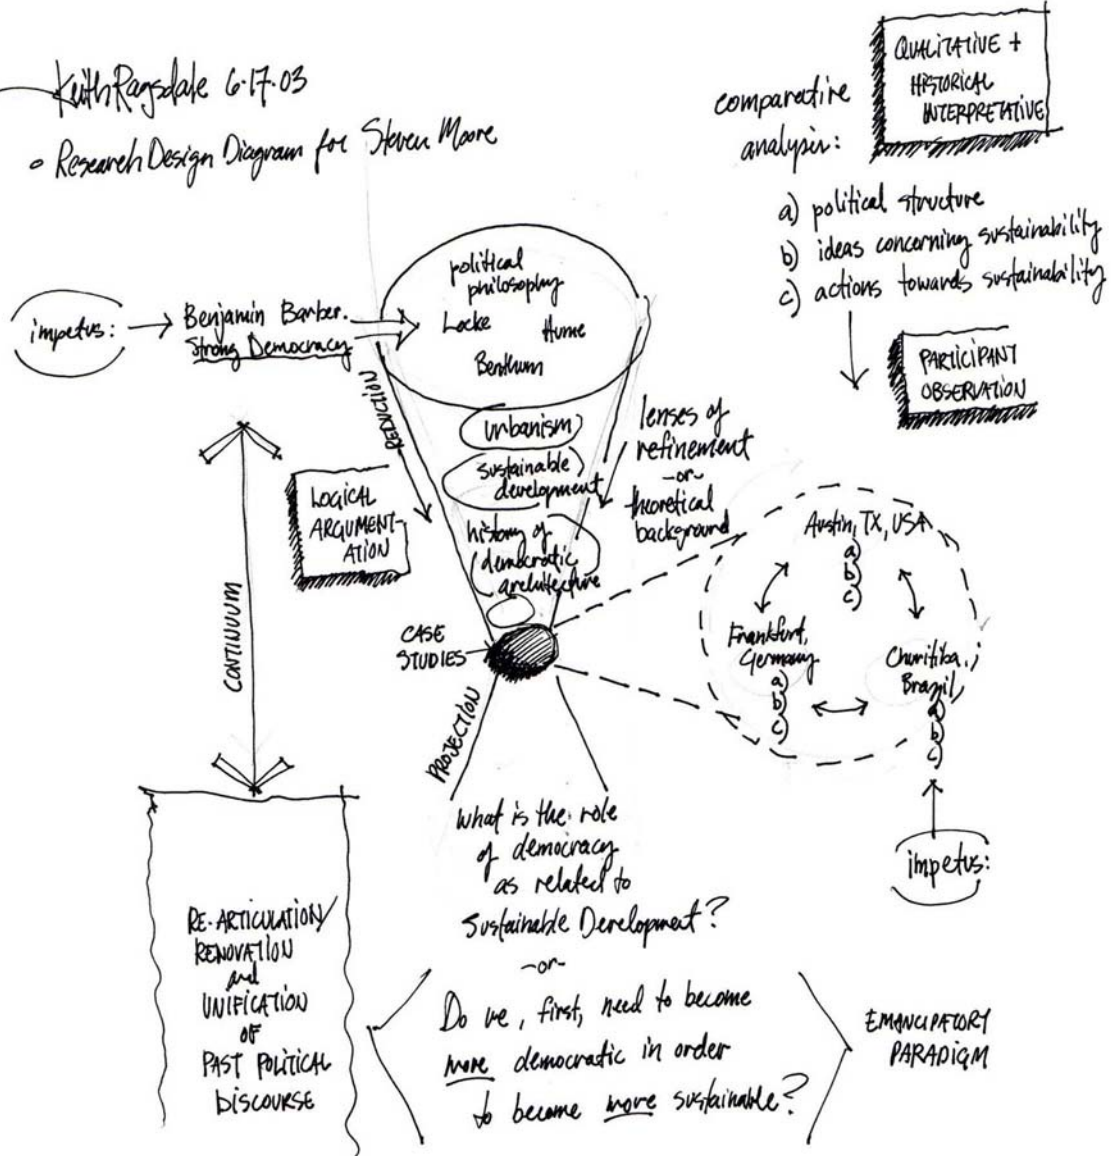 Keith Ragsdale 6.17.03
• Research Design Diagram for Steven Moore
QUALITATIVE +
HISTORICAL
INTERPRETATIVE
comparative
analysis:
a) political structure
b) ideas concerning sustainability
c) actions towards sustainability
PARTICIPANT
OBSERVATION
impetus:
Benjamin Barber.
Strong Democracy
political
philosophy
Locke Hume
Benthum
REDUCTION
urbanism
sustainable
development
history of
democratic
architecture
lenses of
refinement
-or-
theoretical
background
LOGICAL
ARGUMENT-
ATION
CONTINUUM
CASE
STUDIES
PROJECTION
Austin, TX, USA
a)
b)
c)
Frankfurt,
Germany
a)
b)
c)
Churitiba,
Brazil,
a)
b)
c)
impetus:
What is the role
of democracy
as related to
Sustainable Development?
-or-
Do we, first, need to become
more democratic in order
to become more sustainable?
RE-ARTICULATION/
RENOVATION
and
UNIFICATION
OF
PAST POLITICAL
DISCOURSE
EMANCIPATORY
PARADIGM